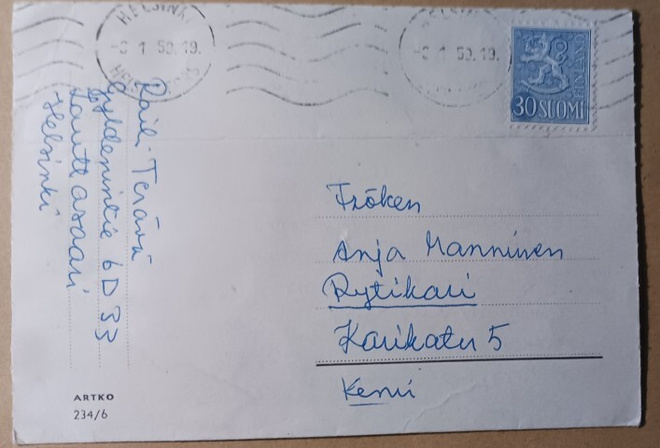 HELSINKI
1 59.19.
HELSINGFORS
1 59.19.
30 SUOMI
FINLAND
Raili Terävä
Gyldenintie 6 D 33
Lauttasaari
Helsinki
Fröken
Anja Manninen
Rytikari
Karikatu 5
Kemi
ARTKO
234/6